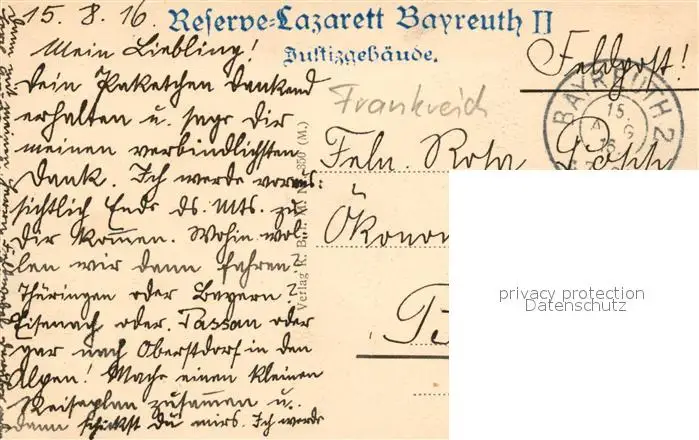 15. 8. 16.
Reserve-Lazarett Bayreuth II
Justizgebäude.
Mein Liebling!
Dein Paketchen dankend
erhalten u. sage Dir
meinen verbindlichsten
Dank. Ich werde voraus:
sichtlich Ende ds. Mts. zu
Dir kommen. Wohin wol-
len wir dann fahren?
Thüringen oder Bayern?
Eisenach, oder Passau oder
gar nach Oberstdorf in den
Alpen! Mache einen kleinen
Reiseplan zusammen u.
dann schickst Du mirs. Ich werde
Feldpost!
Frankreich
BAYREUTH 2
15.
16.
Feln. Rosa Popp
Ökonom
Verlag R. B. i. M.
350 (M.)
privacy protection
Datenschutz